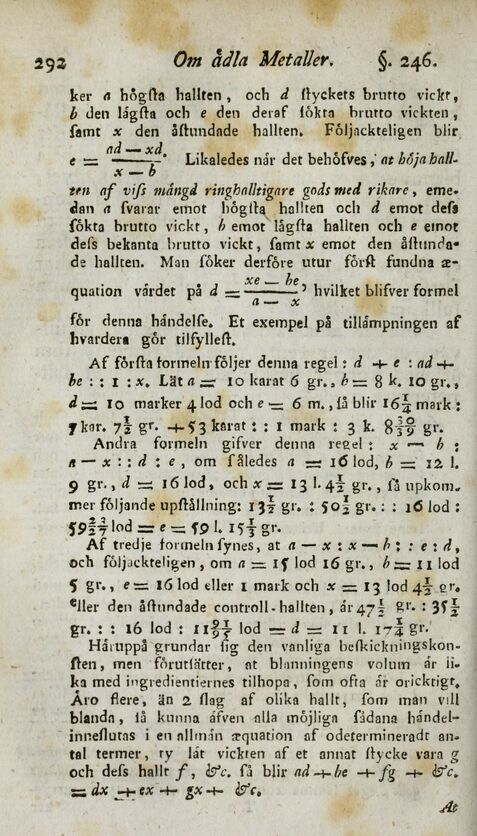 292 Om ådla Metaller. §. 246.
ker a högsta hallten, och d styckets brutto vickt,
b den lägsta och e den deraf sökta brutto vickten,
samt x den åstundade hallten. Följackteligen blir
e = (ad — xd)/(x — b). Likaledes när det behöfves, at höja hall-
ten af viss mängd ringhalltigare gods med rikare, eme-
dan a svarar emot högsta hallten och d emot dess
sökta brutto vickt, b emot lägsta hallten och e emot
dess bekanta brutto vickt, samt x emot den åstunda-
de hallten. Man söker derföre utur först fundna æ-
quation värdet på d = (xe — be)/(a — x), hvilket blifver formel
för denna händelse. Et exempel på tillämpningen af
hvardera gör tilfyllest.
Af första formeln följer denna regel: d + e : ad +
be :: 1 : x. Låt a = 10 karat 6 gr., b = 8 k. 10 gr.,
d = 10 marker 4 lod och e = 6 m., så blir 16¼ mark :
7 kar. 7½ gr. + 53 karat :: 1 mark : 3 k. 8 30/39 gr.
Andra formeln gifver denna regel: x — b :
a — x :: d : e, om således a = 16 lod, b = 12 l.
9 gr., d = 16 lod, och x = 13 l. 4½ gr., så upkom-
mer följande upställning: 13½ gr. : 50½ gr. :: 16 lod :
59 23/27 lod = e = 59 l. 15⅓ gr.
Af tredje formeln synes, at a — x : x — b :: e : d,
och följackteligen, om a = 15 lod 16 gr., b = 11 lod
5 gr., e = 16 lod eller 1 mark och x = 13 lod 4½ gr.
eller den åstundade controll-hallten, är 47½ gr. : 35½
gr. :: 16 lod : 11 91/95 lod = d = 11 l. 17¼ gr.
Häruppå grundar sig den vanliga beskickningskon-
sten, men förutsätter, at blanningens volum är li-
ka med ingredientiernes tilhopa, som ofta är oricktigt.
Äro flere, än 2 slag af olika hallt, som man vill
blanda, så kunna äfven alla möjliga sådana händel-
inneslutas i en allmän æquation af odetermineradt an-
tal termer, ty låt vickten af et annat stycke vara g
och dess hallt f, &c. så blir ad + be + fg + &c.
= dx + ex + gx + &c.
At